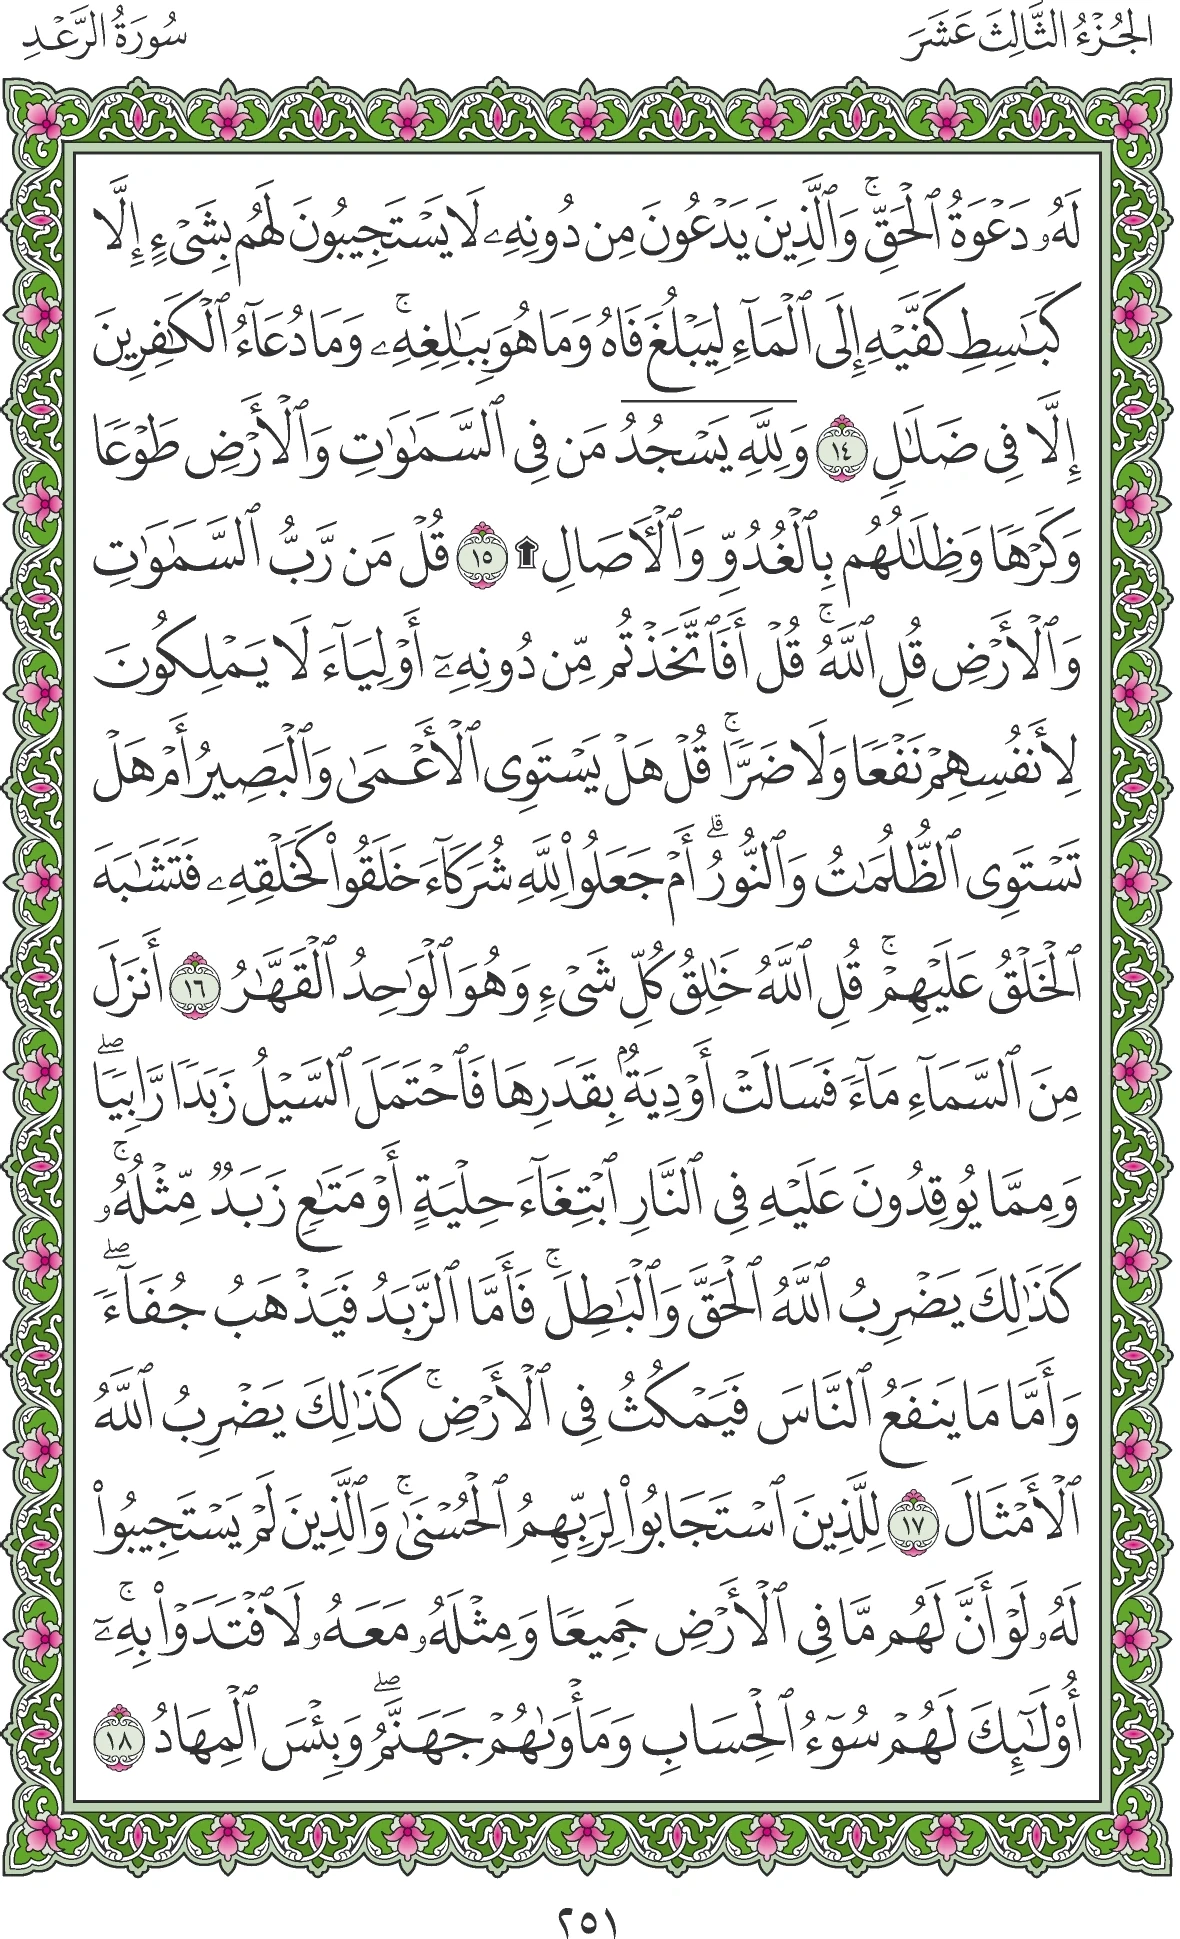 الجُزْءُ الثَّالِثَ عَشَرَ
سُورَةُ الرَّعْدِ
لَهُۥ دَعْوَةُ ٱلْحَقِّۚ وَٱلَّذِينَ يَدْعُونَ مِن دُونِهِۦ لَا يَسْتَجِيبُونَ لَهُم بِشَىْءٍ إِلَّا
كَبَـٰسِطِ كَفَّيْهِ إِلَى ٱلْمَآءِ لِيَبْلُغَ فَاهُ وَمَا هُوَ بِبَـٰلِغِهِۦۚ وَمَا دُعَآءُ ٱلْكَـٰفِرِينَ
إِلَّا فِى ضَلَـٰلٍ ١٤ وَلِلَّهِ يَسْجُدُ مَن فِى ٱلسَّمَـٰوَٰتِ وَٱلْأَرْضِ طَوْعًا
وَكَرْهًا وَظِلَـٰلُهُم بِٱلْغُدُوِّ وَٱلْـَٔاصَالِ ۩ ١٥ قُلْ مَن رَّبُّ ٱلسَّمَـٰوَٰتِ
وَٱلْأَرْضِ قُلِ ٱللَّهُۚ قُلْ أَفَٱتَّخَذْتُم مِّن دُونِهِۦٓ أَوْلِيَآءَ لَا يَمْلِكُونَ
لِأَنفُسِهِمْ نَفْعًا وَلَا ضَرًّاۚ قُلْ هَلْ يَسْتَوِى ٱلْأَعْمَىٰ وَٱلْبَصِيرُ أَمْ هَلْ
تَسْتَوِى ٱلظُّلُمَـٰتُ وَٱلنُّورُۗ أَمْ جَعَلُوا۟ لِلَّهِ شُرَكَآءَ خَلَقُوا۟ كَخَلْقِهِۦ فَتَشَـٰبَهَ
ٱلْخَلْقُ عَلَيْهِمْۚ قُلِ ٱللَّهُ خَـٰلِقُ كُلِّ شَىْءٍ وَهُوَ ٱلْوَٰحِدُ ٱلْقَهَّـٰرُ ١٦ أَنزَلَ
مِنَ ٱلسَّمَآءِ مَآءً فَسَالَتْ أَوْدِيَةٌۢ بِقَدَرِهَا فَٱحْتَمَلَ ٱلسَّيْلُ زَبَدًا رَّابِيًاۖ
وَمِمَّا يُوقِدُونَ عَلَيْهِ فِى ٱلنَّارِ ٱبْتِغَآءَ حِلْيَةٍ أَوْ مَتَـٰعٍ زَبَدٌ مِّثْلُهُۥۚ
كَذَٰلِكَ يَضْرِبُ ٱللَّهُ ٱلْحَقَّ وَٱلْبَـٰطِلَۚ فَأَمَّا ٱلزَّبَدُ فَيَذْهَبُ جُفَآءًۖ
وَأَمَّا مَا يَنفَعُ ٱلنَّاسَ فَيَمْكُثُ فِى ٱلْأَرْضِۚ كَذَٰلِكَ يَضْرِبُ ٱللَّهُ
ٱلْأَمْثَالَ ١٧ لِلَّذِينَ ٱسْتَجَابُوا۟ لِرَبِّهِمُ ٱلْحُسْنَىٰۚ وَٱلَّذِينَ لَمْ يَسْتَجِيبُوا۟
لَهُۥ لَوْ أَنَّ لَهُم مَّا فِى ٱلْأَرْضِ جَمِيعًا وَمِثْلَهُۥ مَعَهُۥ لَٱفْتَدَوْا۟ بِهِۦٓۚ
أُو۟لَـٰٓئِكَ لَهُمْ سُوٓءُ ٱلْحِسَابِ وَمَأْوَىٰهُمْ جَهَنَّمُۖ وَبِئْسَ ٱلْمِهَادُ ١٨
٢٥١